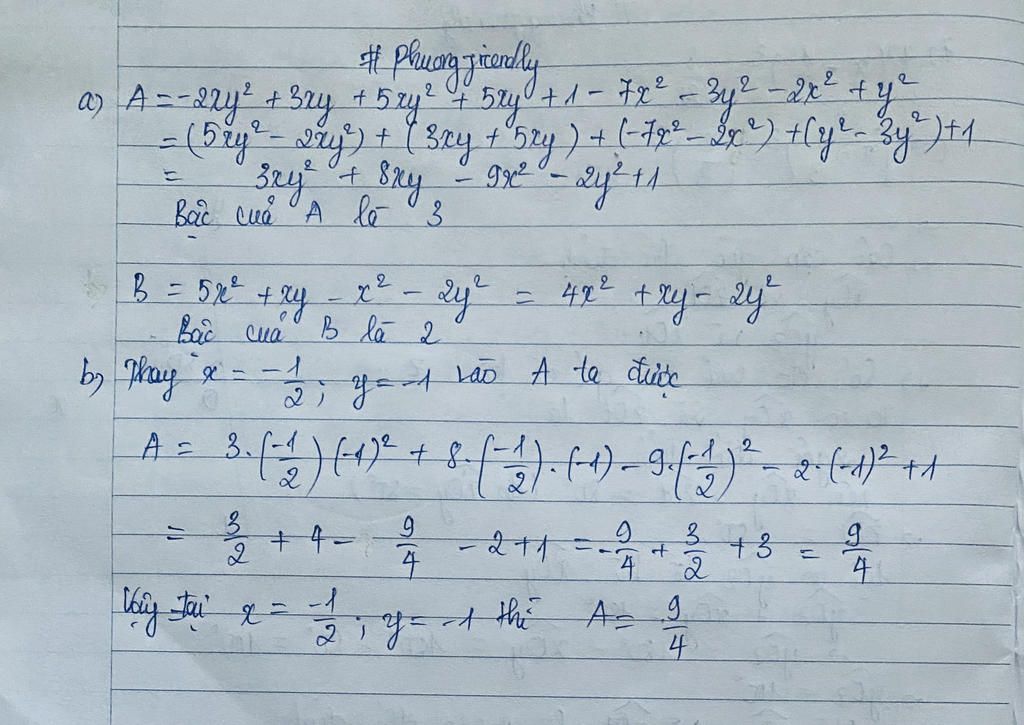 # Phuongfriendly
a) A = -2xy² + 3xy + 5xy² + 5xy + 1 - 7x² - 3y² - 2x² + y²
= (5xy² - 2xy²) + (3xy + 5xy) + (-7x² - 2x²) + (y² - 3y²) + 1
= 3xy² + 8xy - 9x² - 2y² + 1
Bậc của A là 3
B = 5x² + xy - x² - 2y² = 4x² + xy - 2y²
Bậc của B là 2
b) Thay x = -1/2 ; y = -1 vào A ta được
A = 3.(-1/2)(-1)² + 8.(-1/2).(-1) - 9.(-1/2)² - 2.(-1)² + 1
= 3/2 + 4 - 9/4 - 2 + 1 = -9/4 + 3/2 + 3 = 9/4
Vậy tại x = -1/2 ; y = -1 thì A = 9/4